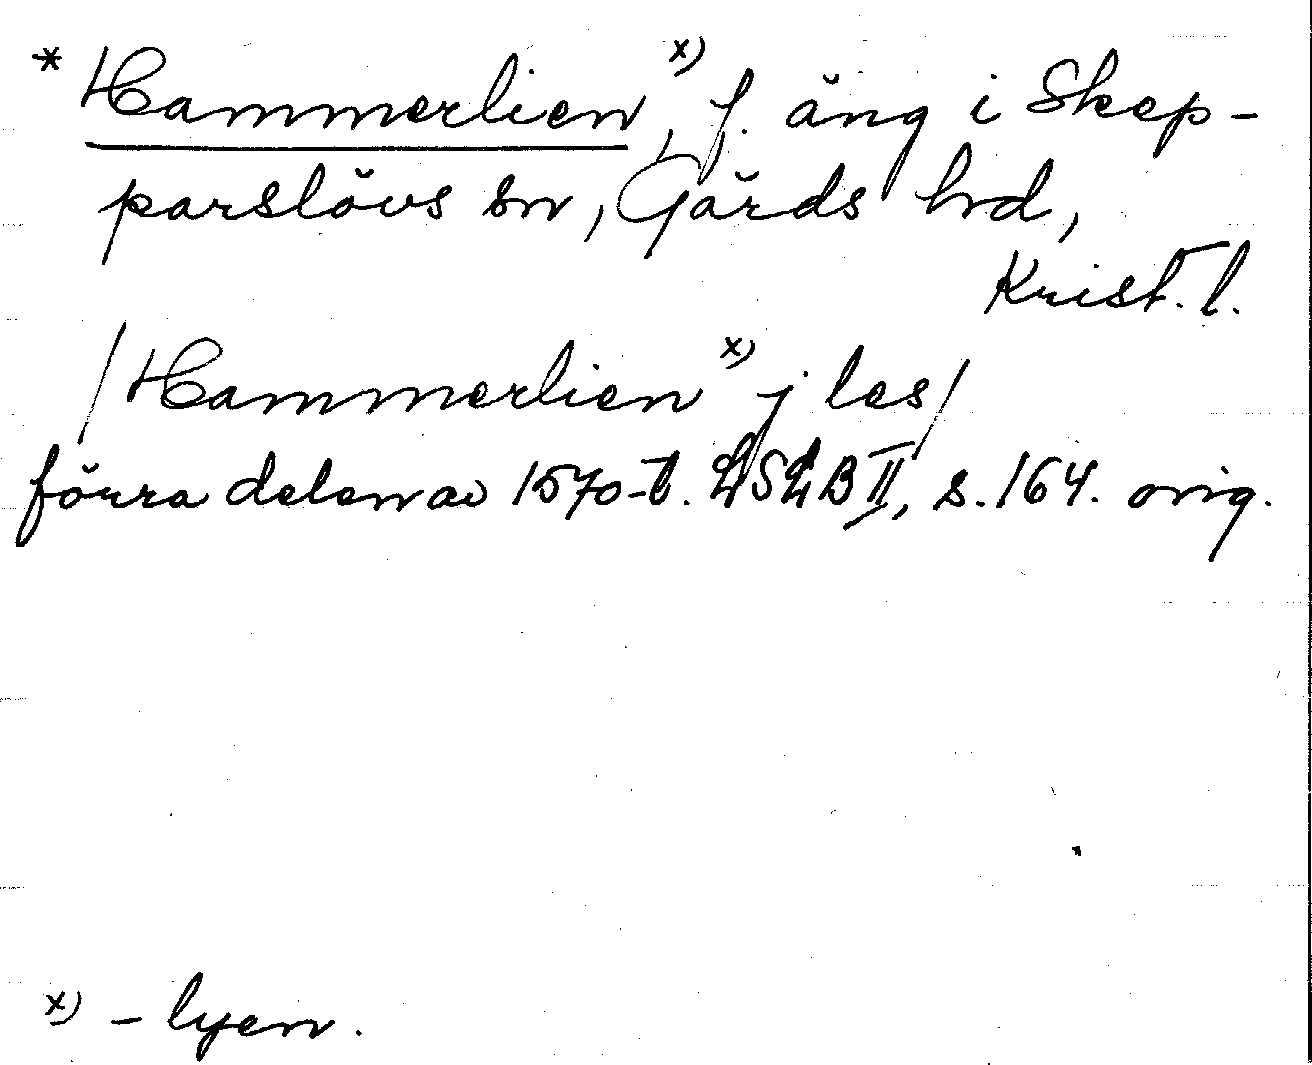 * Hammerlien x), f. äng i Skep-
parslövs sn, Gärds hrd,
Krist. l.
/Hammerlien x) j les/
förra delen av 1570-t. LSLB II, s. 164. orig.
x) - lyen.